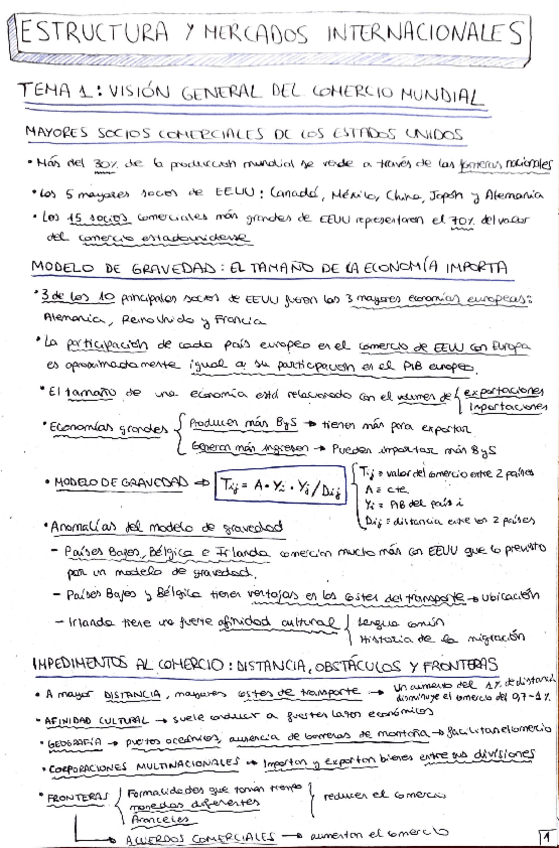 ESTRUCTURA Y MERCADOS INTERNACIONALES
TEMA 1: VISIÓN GENERAL DEL COMERCIO MUNDIAL
MAYORES SOCIOS COMERCIALES DE LOS ESTADOS UNIDOS
• Más del 30% de la producción mundial se vende a través de las fronteras nacionales
• Los 5 mayores socios de EEUU: Canadá, México, China, Japón y Alemania
• Los 15 socios comerciales más grandes de EEUU representaron el 70% del valor
del comercio estadounidense
MODELO DE GRAVEDAD: EL TAMAÑO DE LA ECONOMÍA IMPORTA
• 3 de los 10 principales socios de EEUU fueron las 3 mayores economías europeas:
Alemania, Reino Unido y Francia
• La participación de cada país europeo en el comercio de EEUU con Europa
es aproximadamente igual a su participación en el PIB europeo.
• El tamaño de una economía está relacionado con el volumen de { exportaciones
importaciones
• Economías grandes { Producen más ByS → tienen más para exportar
Generan más ingresos → Pueden importar más ByS
• MODELO DE GRAVEDAD ⇒ Tij = A · Yi · Yj / Dij
Tij = valor del comercio entre 2 países
A = cte
Yi = PIB del país i
Dij = distancia entre los 2 países
• Anomalías del modelo de gravedad
- Países Bajos, Bélgica e Irlanda comercian mucho más con EEUU que lo previsto
por un modelo de gravedad.
- Países Bajos y Bélgica tienen ventajas en los costes del transporte → ubicación
- Irlanda tiene una fuerte afinidad cultural { Lengua común
Historia de la migración
IMPEDIMENTOS AL COMERCIO: DISTANCIA, OBSTÁCULOS Y FRONTERAS
• A mayor DISTANCIA, mayores costes de transporte → Un aumento del 1% de distancia
disminuye el comercio del 0,7-1%
• AFINIDAD CULTURAL → suele conducir a fuertes lazos económicos
• GEOGRAFÍA → puertos oceánicos, ausencia de barreras de montaña → facilitan el comercio
• CORPORACIONES MULTINACIONALES → Importan y exportan bienes entre sus divisiones
• FRONTERAS { Formalidades que toman tiempo
monedas diferentes
Aranceles } reducen el comercio
→ ACUERDOS COMERCIALES → aumentan el comercio
1